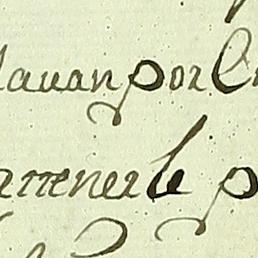 lauan por
arrenerle p